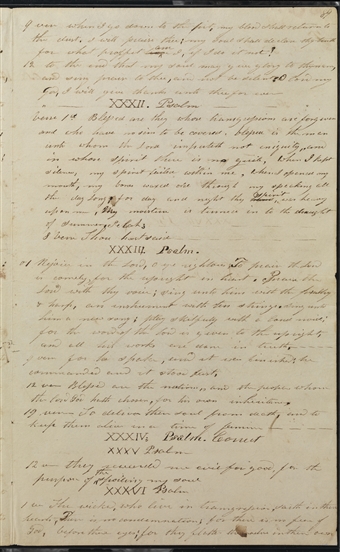 9 ver when I go down to the pit, my blood shall return to
the dust, I will praise thee; my soul shall declare thy truth
for what profit am I, if I do it not?
12 to the end that my soul may give glory to thy name,
and sing praise to thee, and not be silent O Lord my
God, I will give thanks unto thee for ever
XXXII. Psalm
Verse 1st Blessed are they whose transgressions are forgiven
and who have no sin to be covered; blessed is the man
unto whom the Lord imputeth not iniquity, and
in whose spirit there is no guile, When I kept
silence, my spirit failed within me, when I opened my
mouth, my bones waxed old through my speaking all
the day long, for day and night thy spirit was heavy
upon me, My moisture is turned in to the draught
of summer,
5 Ver Thou hast said
XXXIII. Psalm.
1 Rejoice in the Lord, O ye righteous, To praise the Lord
is comely for the upright in heart. Praise the
Lord with thy voice; sing unto him with the psaltry
& harp, an instrument with ten strings, sing unto
him a new song; play skilfully with a loud noise;
for the word of the Lord is given to the upright,
and all his works are done in truth
9 ver for he spake, and it was finished; he
commanded and it stood fast,
12 ver Blessed are the nations, and the people whom
the Lord God hath chosen, for his own inheritance,
19 ver To deliver their soul from death, and to
keep them alive in a time of famine
XXXIV. Psalm. Correct
XXXV Psalm
12 ver they rewarded me evil for good, for the
purpose of the spoiling my soul
XXXVI Psalm
1 ver The wicked, who live in transgression, saith in their
hearts, There is no condemnation; for there is no fear of
God, before their eyes; for they flatter themselves in their own eyes